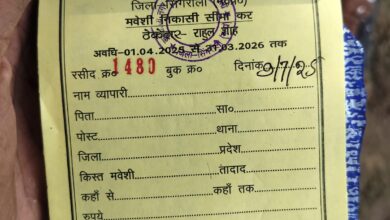 जिला सिंगरौली (म०प्र०)
मवेशी निकासी सीमा कर
ठेकेदार- राहुल
अवधि-01.04.2025 से 31.03.2026 तक
रसीद क्र० 1480 बुक क्र० दिनांक 9/7/25
नाम व्यापारी
पिता सा०
पोस्ट थाना
जिला प्रदेश
किस्त मवेशी तादाद
कहाँ से कहाँ तक
रुपये